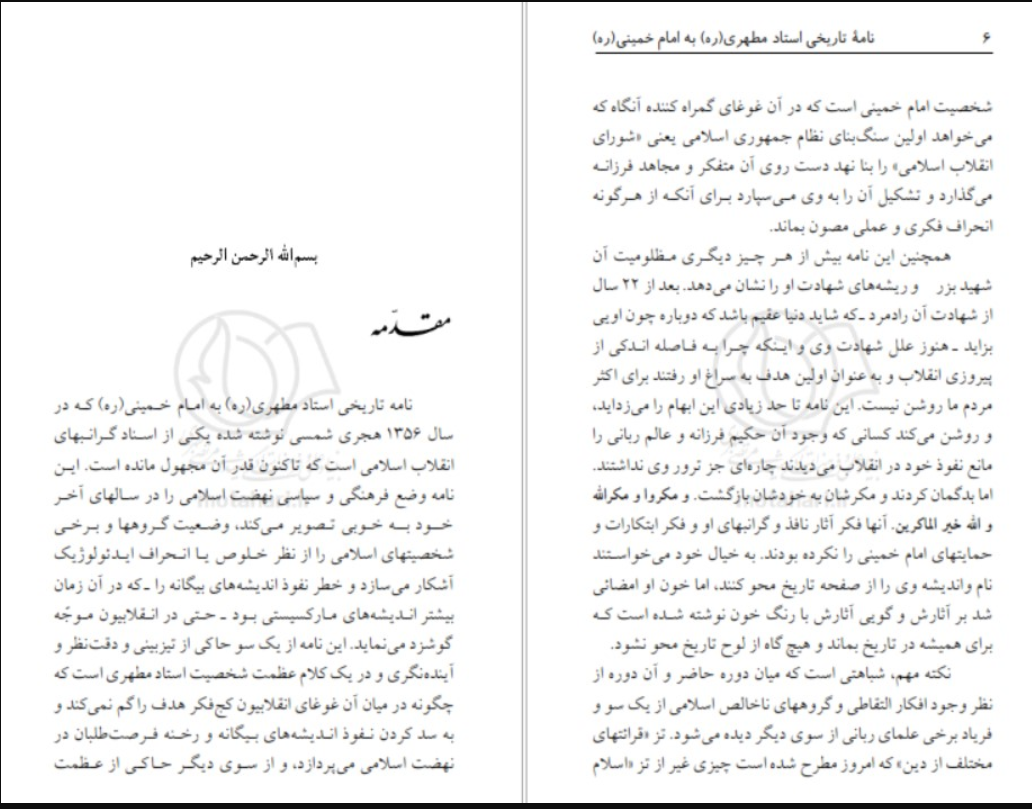 بسم‌الله الرحمن الرحیم
مقدّمه
نامه تاریخی استاد مطهری(ره) به امام خمینی(ره) که در
سال ۱۳۵۶ هجری شمسی نوشته شده یکی از اسناد گرانبهای
انقلاب اسلامی است که تاکنون قدر آن مجهول مانده است. این
نامه وضع فرهنگی و سیاسی نهضت اسلامی را در سالهای آخر
خود به خوبی تصویر می‌کند، وضعیت گروهها و برخی
شخصیتهای اسلامی را از نظر خلوص یا انحراف ایدئولوژیک
آشکار می‌سازد و خطر نفوذ اندیشه‌های بیگانه را ـ که در آن زمان
بیشتر اندیشه‌های مارکسیستی بود ـ حتی در انقلابیون موجّه
گوشزد می‌نماید. این نامه از یک سو حاکی از تیزبینی و دقت‌نظر و
آینده‌نگری و در یک کلام عظمت شخصیت استاد مطهری است که
چگونه در میان آن غوغای انقلابیون کج‌فکر هدف را گم نمی‌کند و
به سد کردن نفوذ اندیشه‌های بیگانه و رخنه فرصت‌طلبان در
نهضت اسلامی می‌پردازد، و از سوی دیگر حاکی از عظمت
motahari.ir
۶ نامۀ تاریخی استاد مطهری(ره) به امام خمینی(ره)
شخصیت امام خمینی است که در آن غوغای گمراه کننده آنگاه که
می‌خواهد اولین سنگ‌بنای نظام جمهوری اسلامی یعنی «شورای
انقلاب اسلامی» را بنا نهد دست روی آن متفکر و مجاهد فرزانه
می‌گذارد و تشکیل آن را به وی می‌سپارد برای آنکه از هرگونه
انحراف فکری و عملی مصون بماند.
همچنین این نامه بیش از هر چیز دیگری مظلومیت آن
شهید بزر و ریشه‌های شهادت او را نشان می‌دهد. بعد از ۲۲ سال
از شهادت آن رادمرد ـ که شاید دنیا عقیم باشد که دوباره چون اویی
بزاید ـ هنوز علل شهادت وی و اینکه چرا به فاصله اندکی از
پیروزی انقلاب و به عنوان اولین هدف به سراغ او رفتند برای اکثر
مردم ما روشن نیست. این نامه تا حد زیادی این ابهام را می‌زداید،
و روشن می‌کند کسانی که وجود آن حکیم فرزانه و عالم ربانی را
مانع نفوذ خود در انقلاب می‌دیدند چاره‌ای جز ترور وی نداشتند.
اما بدگمان کردند و مکرشان به خودشان بازگشت. و مکروا و مکرالله
و الله خیر الماکرین. آنها فکر آثار نافذ و گرانبهای او و فکر ابتکارات و
حمایتهای امام خمینی را نکرده بودند. به خیال خود می‌خواستند
نام واندیشه وی را از صفحه تاریخ محو کنند، اما خون او امضائی
شد بر آثارش و گویی آثارش با رنگ خون نوشته شده است که
برای همیشه در تاریخ بماند و هیچ گاه از لوح تاریخ محو نشود.
نکته مهم، شباهتی است که میان دوره حاضر و آن دوره از
نظر وجود افکار التقاطی و گروههای ناخالص اسلامی از یک سو و
فریاد برخی علمای ربانی از سوی دیگر دیده می‌شود. تز «قرائتهای
مختلف از دین» که امروز مطرح شده است چیزی غیر از تز «اسلام
motahari.ir